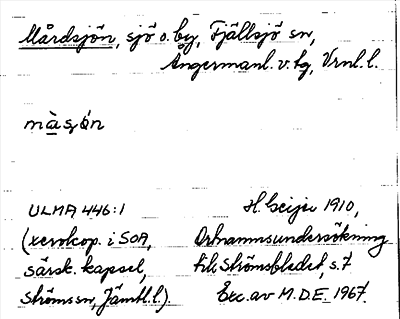 Mårdsjön, sjö o. by, Fjällsjö sn,
Ångermanl. v. tg, Vrnl. l.
màsǫ́n
ULMA 446:1
(xerokop. i SOA,
särsk. kapsel,
Ströms sn, Jämtl. l.).
H. Geijer 1910,
Ortnamnsundersökning
till Strömsbladet, s. 7.
Exc. av M.D.E. 1967.